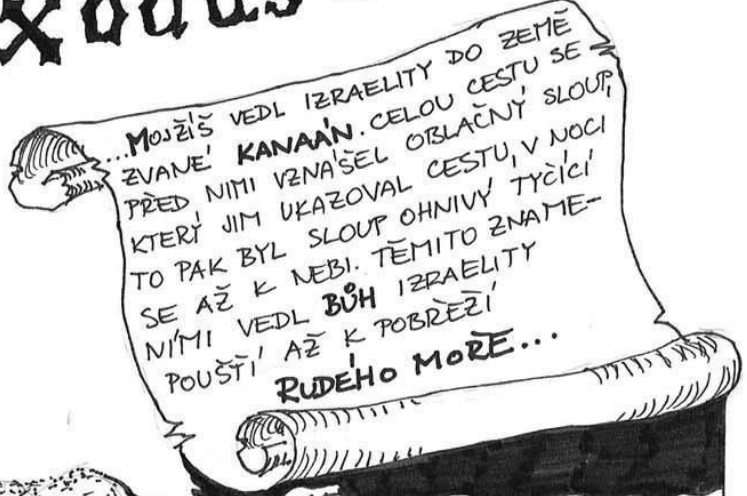 xodus
...MOJŽÍŠ VEDL IZRAELITY DO ZEMĚ
ZVANÉ KANAÁN. CELOU CESTU SE
PŘED NIMI VZNÁŠEL OBLAČNÝ SLOUP,
KTERÝ JIM UKAZOVAL CESTU, V NOCI
TO PAK BYL SLOUP OHNIVÝ TYČÍCÍ
SE AŽ K NEBI. TĚMITO ZNAME-
NÍMI VEDL BŮH IZRAELITY
POUŠTÍ AŽ K POBŘEŽÍ
RUDÉHO MOŘE...